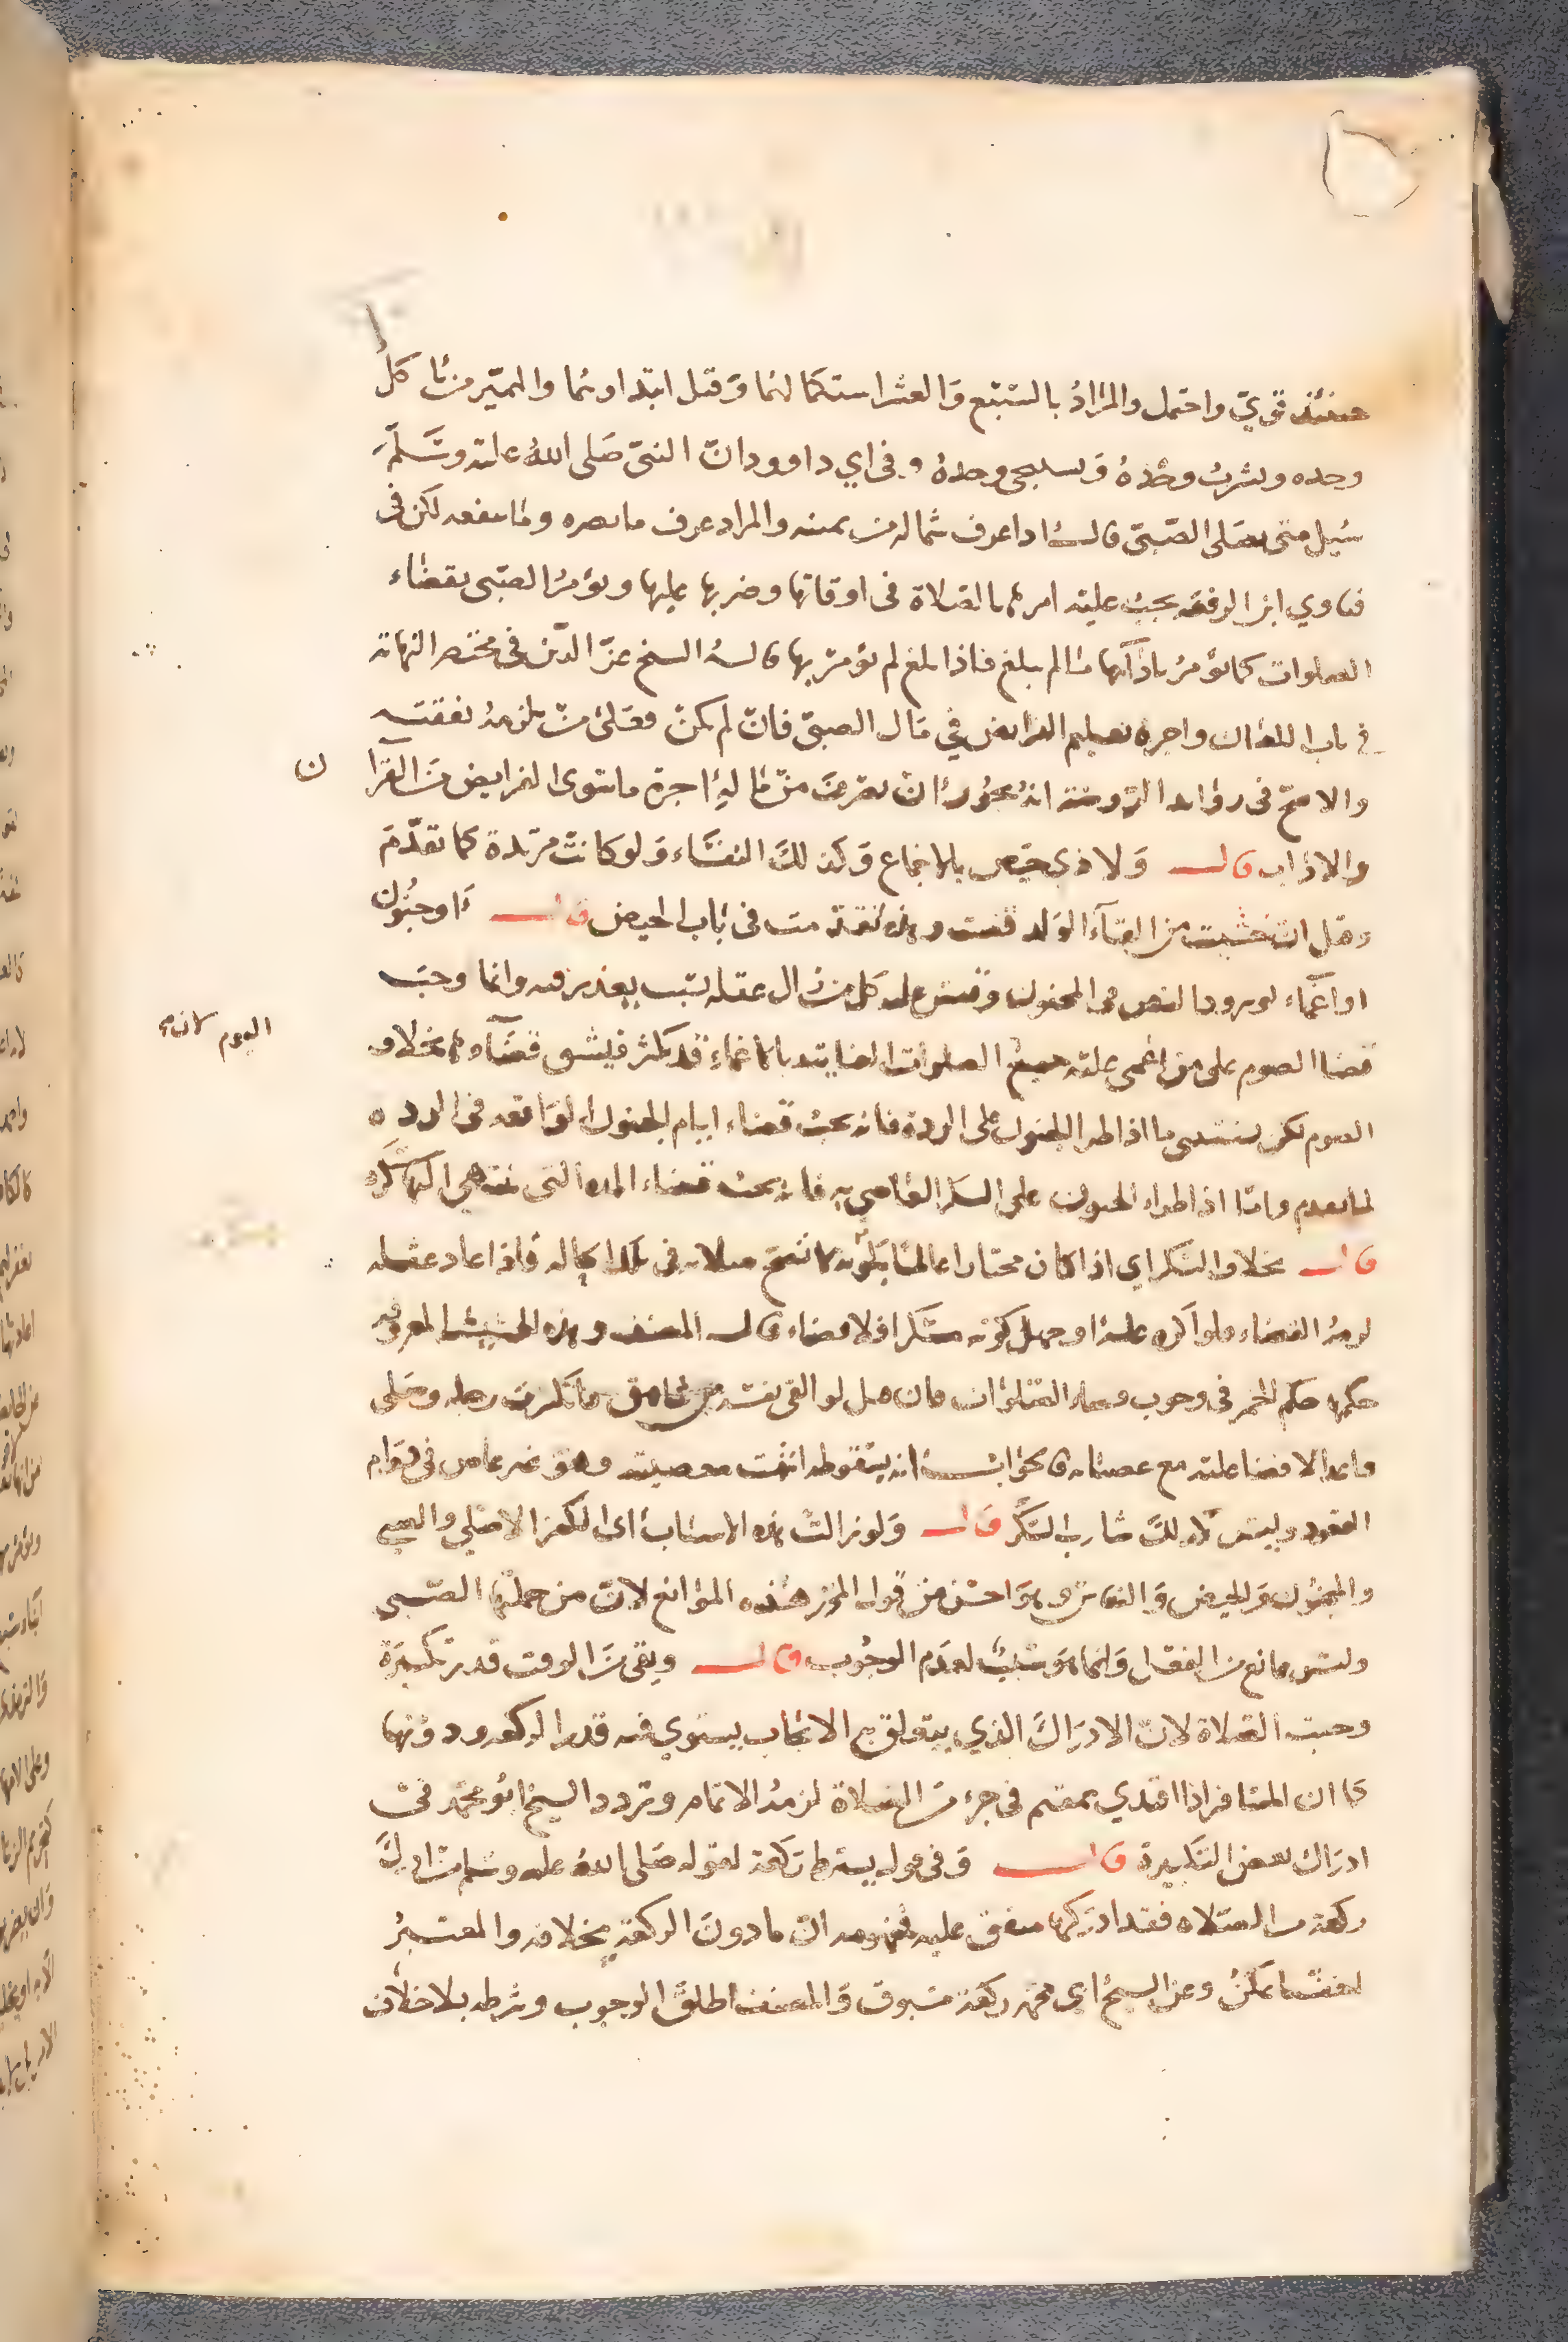 حينئذ قوي واحتمل والمراد بالسبع والعشر استكمالهما وقيل ابتداوهما والمميز من يأكل
وحده ويشرب وحده ويستنجي وحده وفي ابي داوود ان النبي صلى الله عليه وسلم
سُيل متى يصلي الصبي قال اذا عرف شماله من يمينه والمراد عرف ما يضره وما ينفعه لكن في
فتاوي ابن الرفعة يجب عليه امرهما بالصلاة في اوقاتها وضربها عليها ويؤمر الصبي بقضاء
الصلوات كما يؤمر بادآئها ما لم يبلغ فاذا بلغ لم يؤمر بها قاله الشيخ عز الدين في مختصر النهاية
في باب اللعان واجرة تعليم الفرايض في مال الصبي فان لم يكن فعلى من يلزمه نفقته
والاصح في زوايد الروضة انه يجوز ان يصرف من ماله اجرة ما سوى الفرايض من القرآن
والاداب قال ولا ذي حيض بالاجماع وكذلك النفساء ولو كانت مرتدة كما تقدم
وقيل ان تسببت من القآء الولد قضت وهذه تقدمت في باب الحيض قال او جنون
او اغماء لورود النص في المجنون وقيس عليه كل من زال عقله بسبب يعذر فيه وانما وجب
قضا الصوم على من اغمي عليه جميع اليوم لان الصلوات الفايتة بالاغماء قد تكثر فيشق قضآوها بخلاف
الصوم لكن يستثنى ما اذا طرا الجنون على الردة فانه يجب قضاء ايام الجنون الواقعة في الردة
لما تقدم وما اذا طراء الجنون على السكر العاصي به فانه يجب قضاء المدة التي ينتهي اليها سكره
قال بخلاف السكر اي اذا كان مختارا عالما بكونه لا تصح صلاته في تلك الحالة فاذا عاد عقله
لزمه القضاء فلو اكره عليه او جهل كونه مسكرا فلا قضاء قال المصنف وهذه الحشيشة المعروفة
حكمها حكم الخمر في وجوب قضاء الصلوات فان قيل لو القى نفسه من شاهق فانكسرت رجله وصلى
قاعدا لا قضا عليه مع عصيانه فالجواب انه بسقوطه انتهت معصيته وهو غير عاص في دوام
القعود وليس كذلك شارب السكر قال ولو زالت هذه الاسباب اي الكفر الاصلي والصبي
والجنون والحيض والنفاس وهو احسن من قول المحرر هذه الموانع لان من جملتها الصبي
وليس مانع من الفعل وانما هو سبب لعدم الوجوب قال وبقي من الوقت قدر تكبيرة
وجبت الصلاة لان الادراك الذي يتعلق به الايجاب يستوي فيه قدر الركعة ودونها
كما ان المسافر اذا اقتدي بمقيم في جزء من الصلاة لزمه الاتمام وتردد الشيخ ابو محمد في
ادراك بعض التكبيرة قال وفي قول يشترط ركعة لقوله صلى الله عليه وسلم من ادرك
ركعة من الصلاه فقد ادركها متفق عليه فمفهومه ان ما دون الركعة بخلافه والمعتبر
اخف ما يمكن وعن الشيخ ابي محمد ركعة مسبوق والمصنف اطلق الوجوب وشرطه بلا خلاف